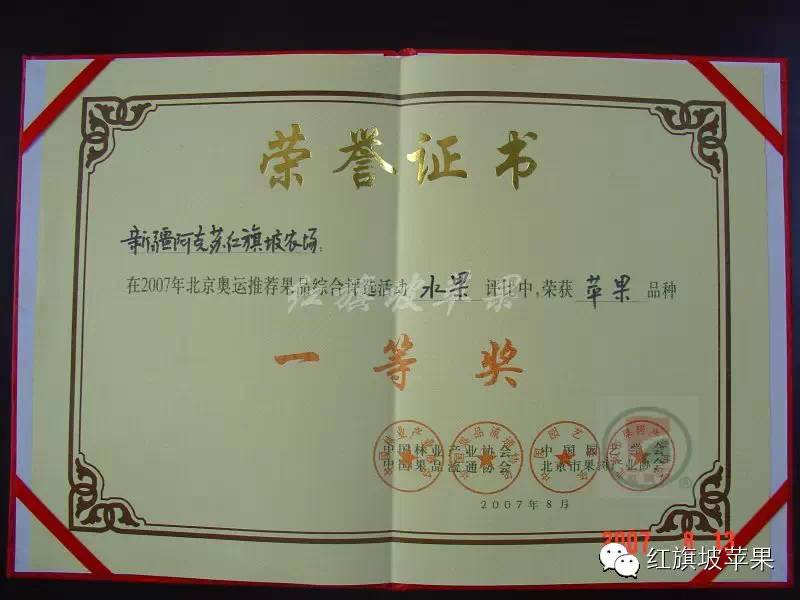 荣誉证书
新疆阿克苏红旗坡农场：
在2007年北京奥运推荐果品综合评选活动 水果 评比中,荣获 苹果 品种
红旗坡苹果
一等奖
中国林业产业协会 中国园艺学会
中国果品流通协会 北京市果树产业协会
2007年8月
2007 8 13
红旗坡苹果